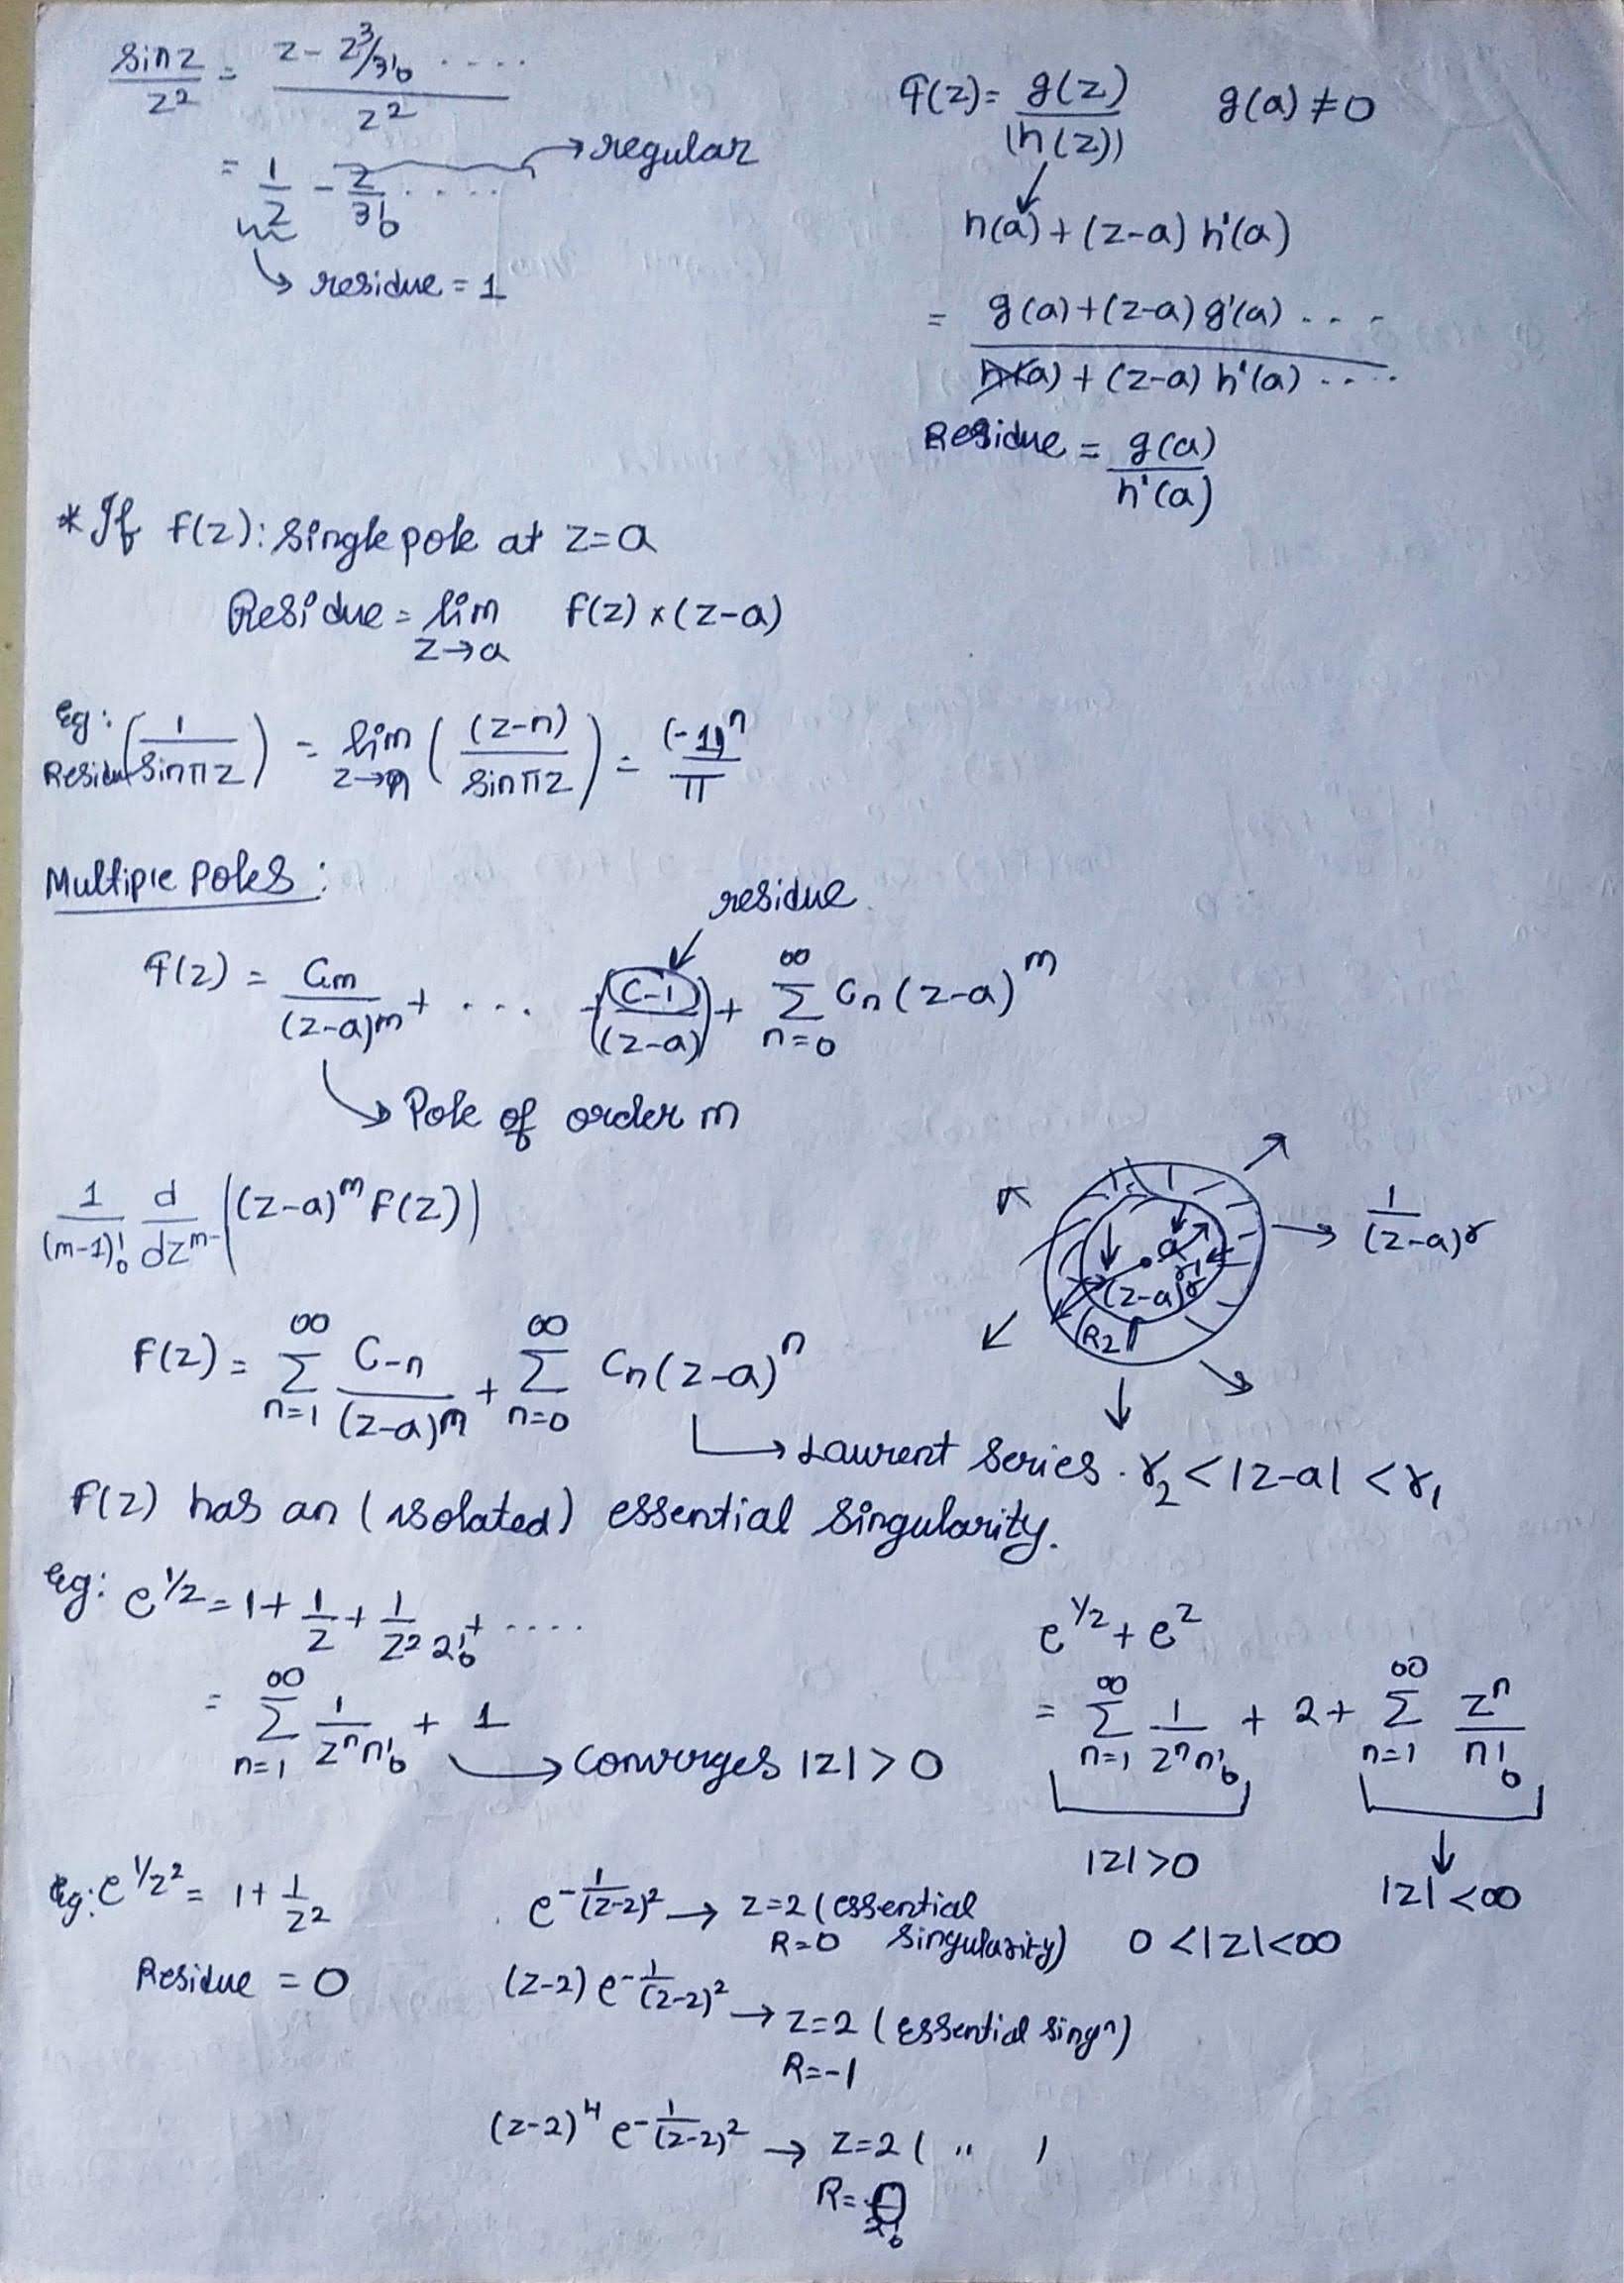 sinz/z² = (z - z³/3! ....)/z²
= 1/z - z/3! .... → regular
↳ residue = 1
f(z) = g(z)/(h(z)) g(a) ≠ 0
↓
h(a) + (z-a) h'(a)
= (g(a) + (z-a) g'(a) ....)/(h(a) + (z-a) h'(a) ....)
Residue = g(a)/h'(a)
* If f(z): Single pole at z=a
Residue = lim z→a f(z) × (z-a)
eg: Residue (1/sinπz) = lim z→n ((z-n)/sinπz) = (-1)ⁿ/π
Multiple poles:
residue
f(z) = C-m/(z-a)^m + .... + C-1/(z-a) + ∞ Σ n=0 Cn (z-a)^m
↳ Pole of order m
1/(m-1)! d/dz^m- ((z-a)^m f(z))
a
r1
(z-a)^r
R2
→ 1/(z-a)^r
f(z) = ∞ Σ n=1 C-n/(z-a)^m + ∞ Σ n=0 Cn (z-a)ⁿ
↳ Laurent Series. r₂ < |z-a| < r₁
f(z) has an (isolated) essential Singularity.
eg: e^1/z = 1 + 1/z + 1/z² 2! + ....
= ∞ Σ n=1 1/zⁿ n! + 1
↳ Converges |z| > 0
e^1/z + e^z
= ∞ Σ n=1 1/zⁿ n! + 2 + ∞ Σ n=1 zⁿ/n!
|z| > 0
↓
|z| < ∞
0 < |z| < ∞
eg: e^1/z² = 1 + 1/z²
Residue = 0
e^-1/(z-2)² → z=2 (essential
R=0 Singularity)
(z-2) e^-1/(z-2)² → z=2 (essential singⁿ)
R=-1
(z-2)⁴ e^-1/(z-2)² → z=2 ( " )
R= 0